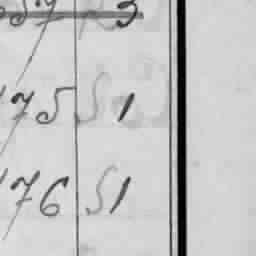 3
175 S 1
176 S 1